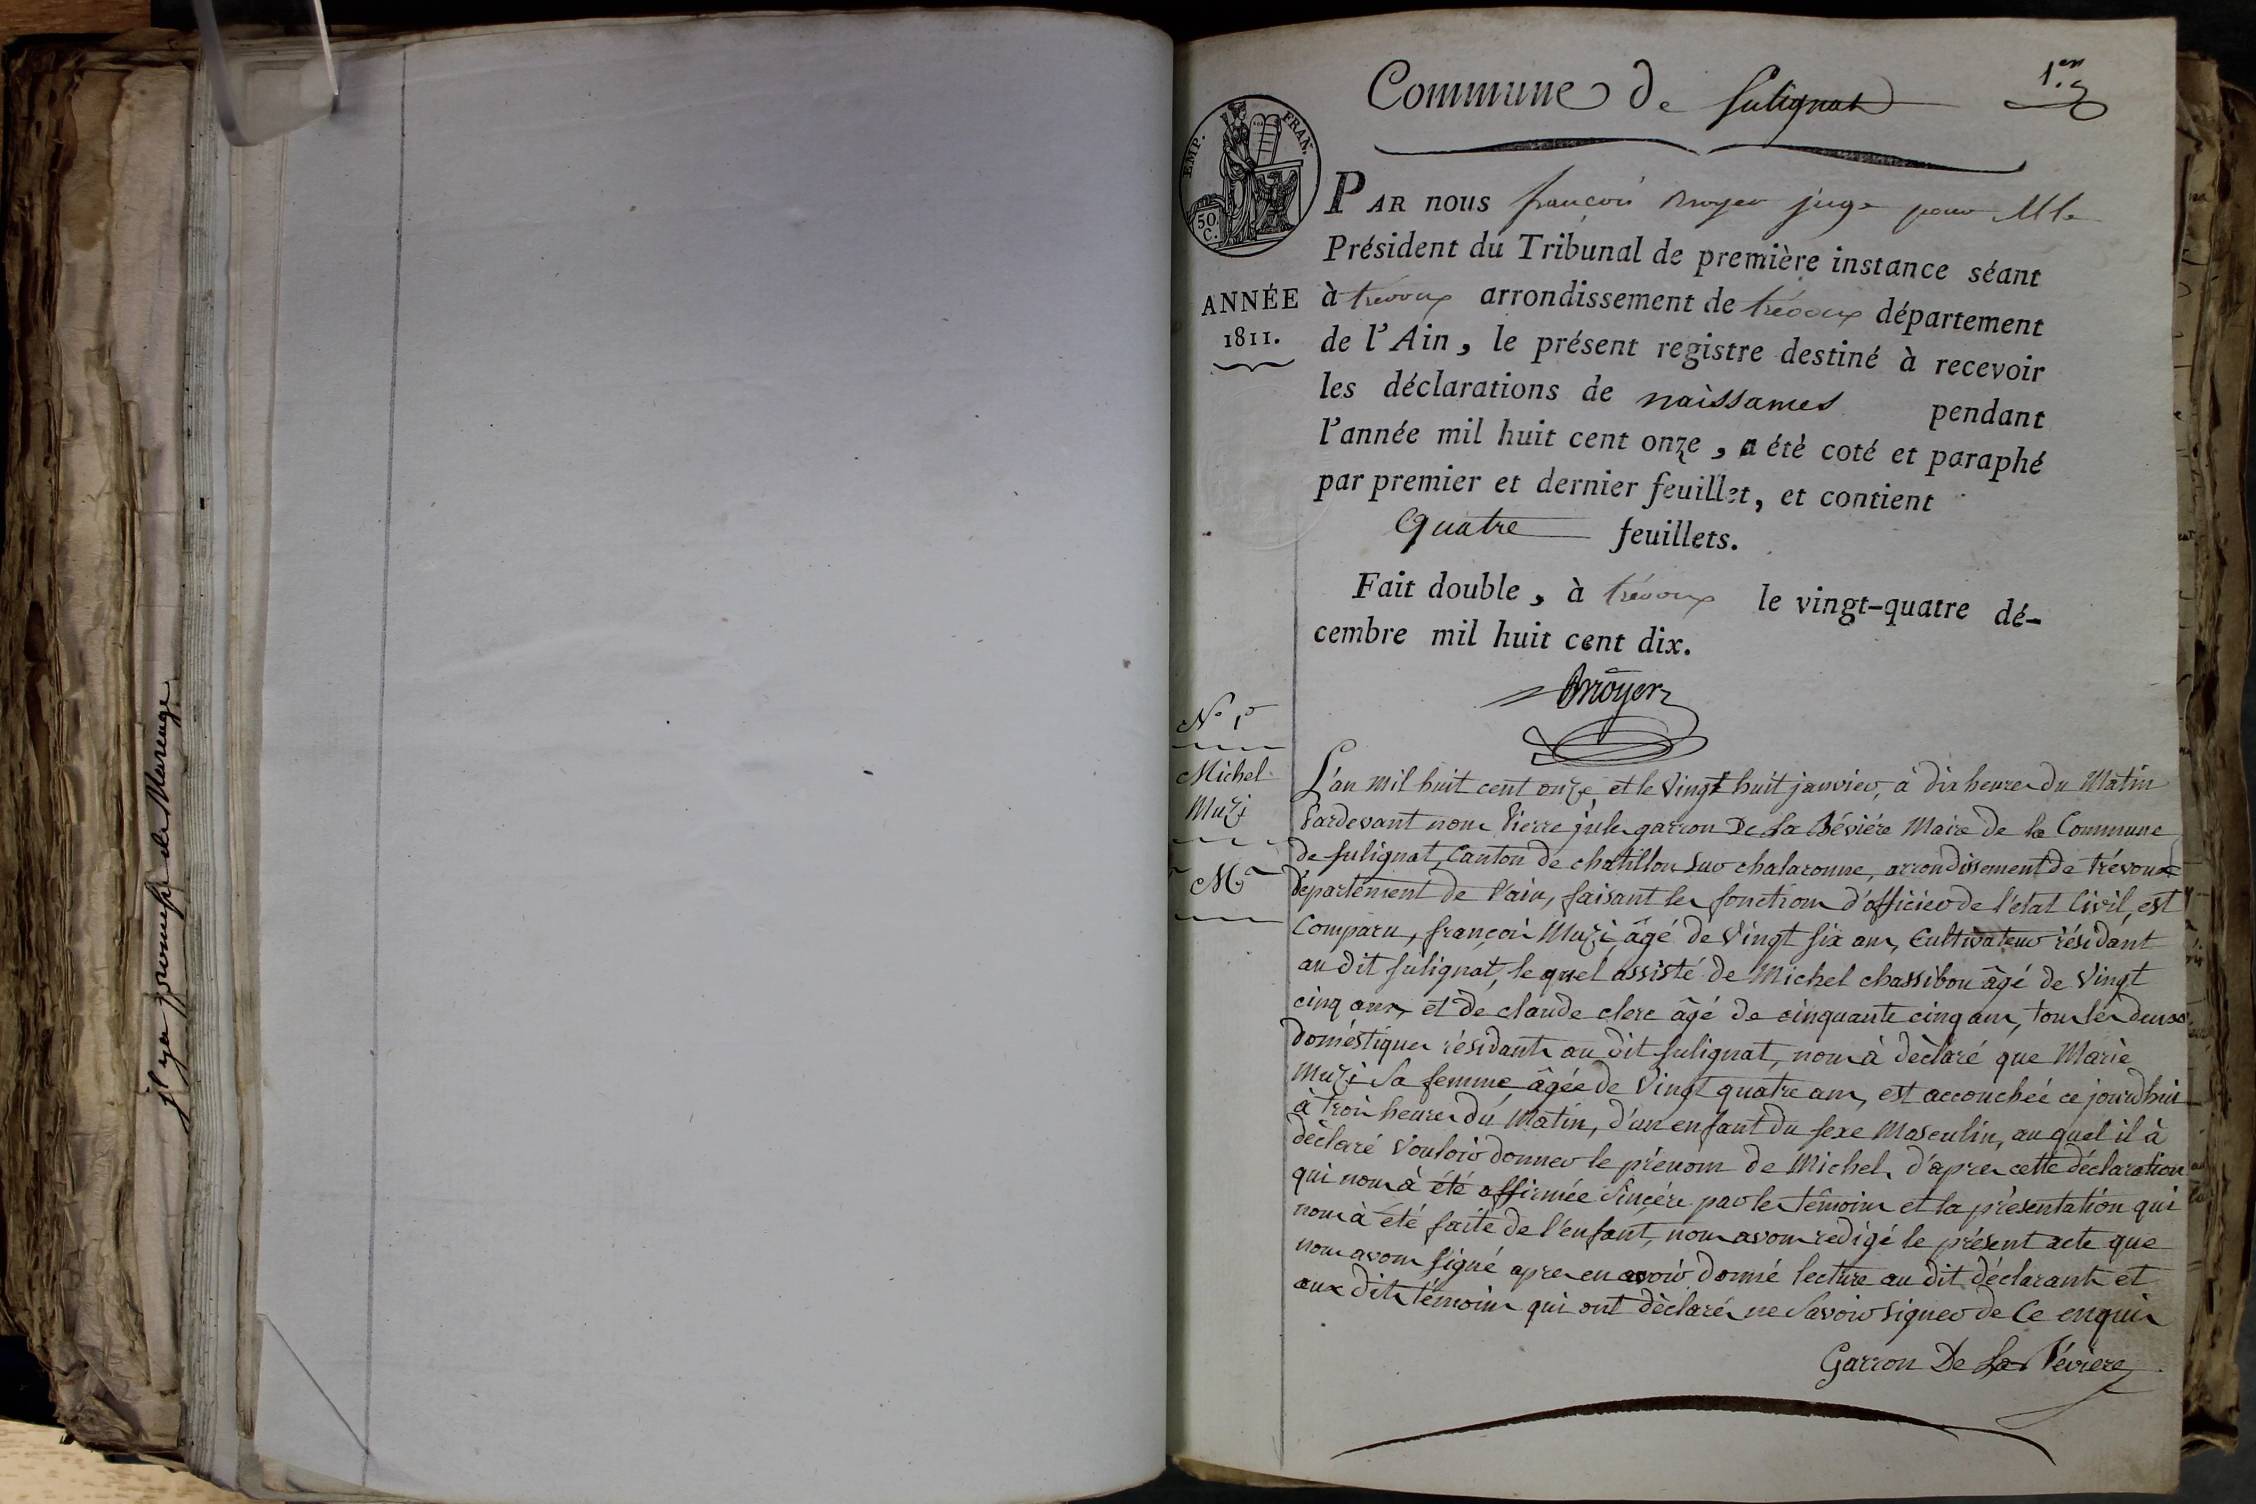 jl ya promesse de Mareage
Commune de Sulignat
1.er
EMP. FRAN.
50. C.
ANNÉE
1811.
PAR nous françois Broyer juge pour M le
Président du Tribunal de première instance séant
à trévoux arrondissement de trévoux département
de l'Ain, le présent registre destiné à recevoir
les déclarations de naissances pendant
l'année mil huit cent onze, a été coté et paraphé
par premier et dernier feuillet, et contient
Quatre feuillets.
Fait double, à trévoux le vingt-quatre dé-
cembre mil huit cent dix.
Broyer
N° 1er
Michel
Muzi
M
L'an mil huit cent onze, et le Vingt huit janvier, à dix heures du Matin
Pardevant nous Pierre jules garron De La Bévière Maire de la Commune
de Sulignat, Canton de chatillon sur chalaronne, arrondissement de trévoux
Département de l'ain, faisant les fonctions d'officier de l'etat Civil, est
Comparu, françois Muzi, âgé de Vingt Six ans, Cultivateur résidant
au dit Sulignat, le quel assisté de Michel chassibou âgé de Vingt
cinq ans, et de claude clerc âgé de cinquante cinq ans, tous les deux
doméstiques résidants au dit Sulignat, nous à déclaré que Marie
Muzi Sa femme âgée de Vingt quatre ans, est accouchée ce jourdhui
à trois heures du Matin, d'un enfant du Sexe Masculin, au quel il à
dèclaré Vouloir donner le prénom de Michel, d'apres cette déclaration
qui nous à été affirmée Sincére par les témoins et la présentation qui
nous à été faite de l'enfant, nous avons redigé le présent acte que
nous avons Signé apres en avoir donné lecture au dit déclarant et
aux dits témoins qui ont dèclarés ne Savoir Signer de Ce enquis
Garron De La Bévière